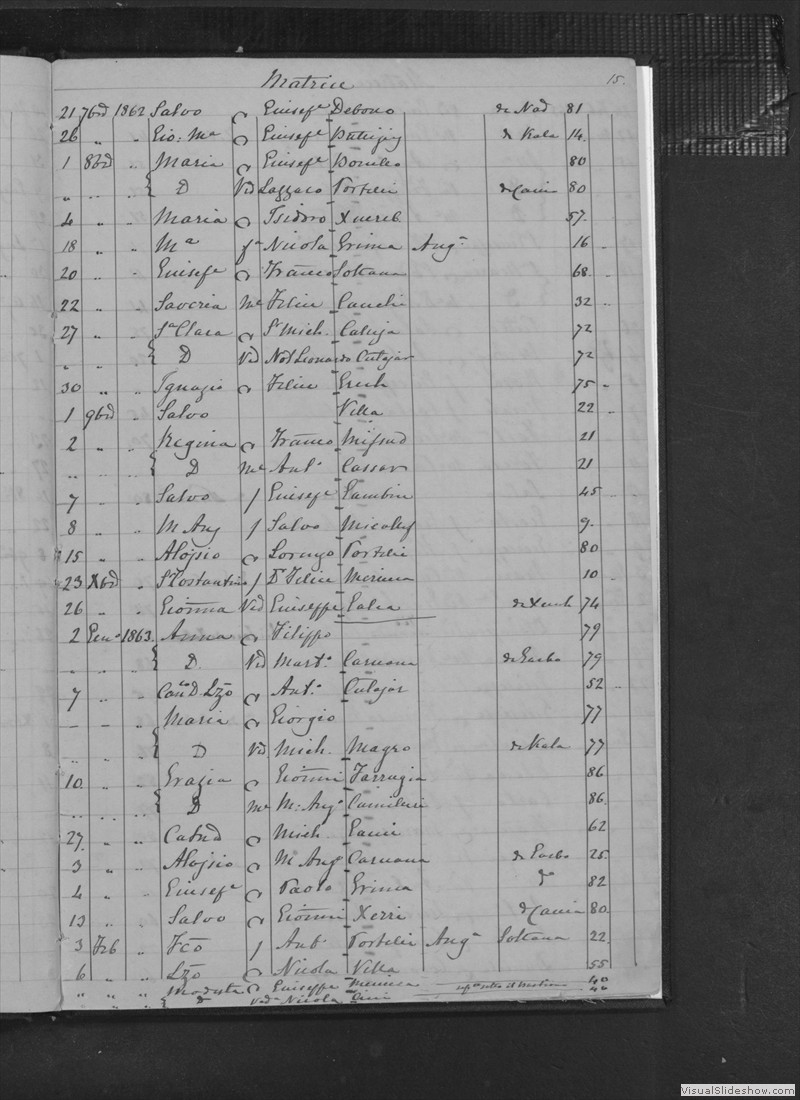 Matrice 15.
21 7bd 1862 Salvo Giusefe Debono de Nad 81
26 „ .. Gio: Ma Giusefe de Kala 14.
1 8bd .. Maria Giusefe 80
„ .. .. D Vid Lazzaro Portelli de Cauin 80
4 .. .. Maria Isidoro Xuereb 57.
18 .. .. Ma fa Nicola Grima Anga 16
20 .. .. Giusefe Franco Soltana 68.
22 .. .. Saveria Me Felice 32
27 .. .. Sa Clara Sr Mich. 72
„ .. .. D Vid Not Leonardo Cutajar 72
30 .. .. Ignazio Felice Grech 75
1 9bd .. Salvo Villa 22
2 .. .. Regina Franco Mifsud 21
.. .. D Me Anto Cassar 21
7 .. .. Salvo f Giusefe 45
8 .. .. M Ang f Salvo Micallef 9.
15 .. .. Alojsio Lorenzo Portelli 80
23 Xbd .. Sr Costantino f Dr Felice 10
26 .. .. Giovnna Vid Giuseppe Galea de Xeuch 74
2 Geno 1863. Anna Filippo 79
.. .. .. D. Vid Marto Caruana de Garbo 79
7 .. .. Cano D. Lzo Anto Cutajar 52
– – .. Maria Giorgio 77
.. .. .. D Vd Mich. Magro de Kala 77
10 .. .. Grazia Giovnni Farrugia 86
.. .. .. D Me M: Ango Camilleri 86.
27. .. .. Catnd Mich 62
3 .. .. Alojsio M Ang Caruana de Garbo 25.
4 .. .. Giusefe Paolo Grima do 82
13 .. .. Salvo Giovnni Xerri de Cauin 80.
3 Feb .. Fco f Anto Portelli Anga Soltana 22.
6 .. .. Lzo Nicola Villa 55
„ „ „ Modesta Giuseppe 40
„ „ „ D Vda Nicola 40
VisualSlideshow.com